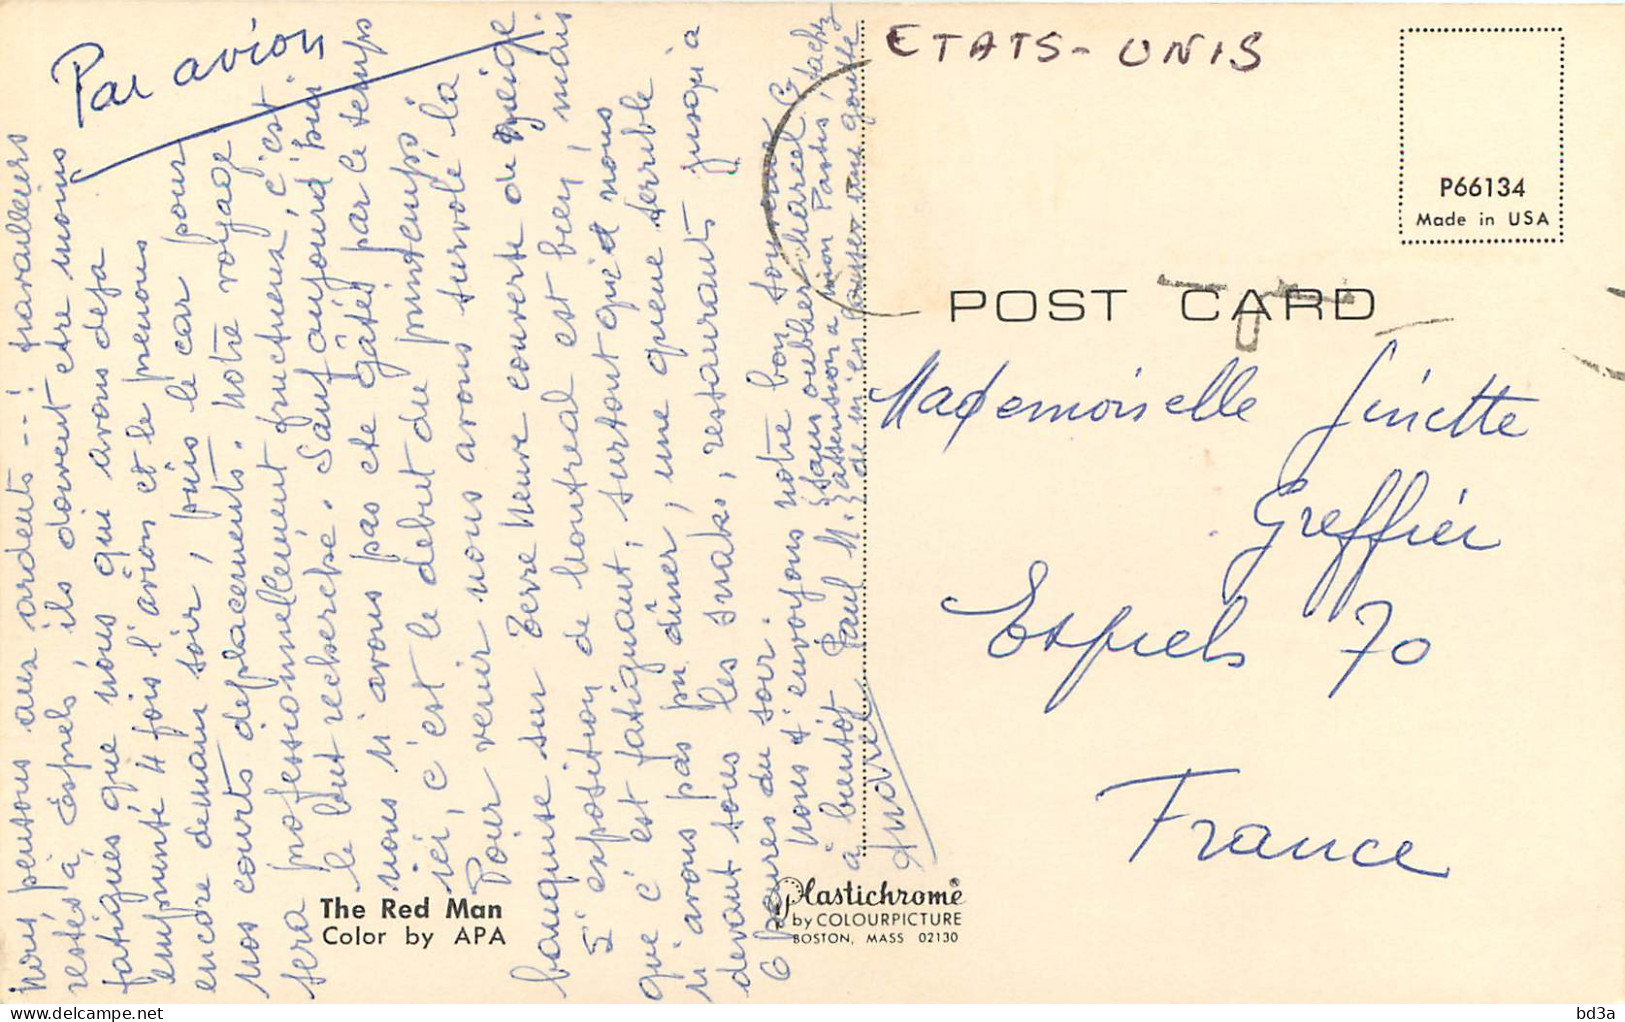 Par avion
Nous pensons aux ardents --! travailleurs
restés à Esprels, ils doivent etre moins
fatigués que nous qui avons deja
emprunté 4 fois l'avion et le prenons
encore demain soir, puis le car pour
nos courts deplacements. Notre voyage
sera professionnellement fructueux, c'est
le but recherché. Sauf aujourd'hui
nous n'avons pas ete gâtés par le temps
ici, c'est le debut du printemps
Pour venir nous avons survolé la
banquise sur Terre Neuve couverte de neige
L'exposition de Montreal est bien, mais
que c'est fatiguant, surtout que nous
n'avons pas pu dîner, une queue terrible
devant tous les snaks, restaurants jusqu'a
6 heures du soir.
Nous t'envoyons notre bon souvenir
à bientôt Paul M.
André
sans oublier Marcel G
attention a mon Pastis, tachez
de m'en laisser une goutte
ETATS-UNIS
P66134
Made in USA
POST CARD
Mademoiselle Ginette
Greffier
Esprels 70
France
The Red Man
Color by APA
Plastichrome®
by COLOURPICTURE
BOSTON, MASS 02130
bd3a